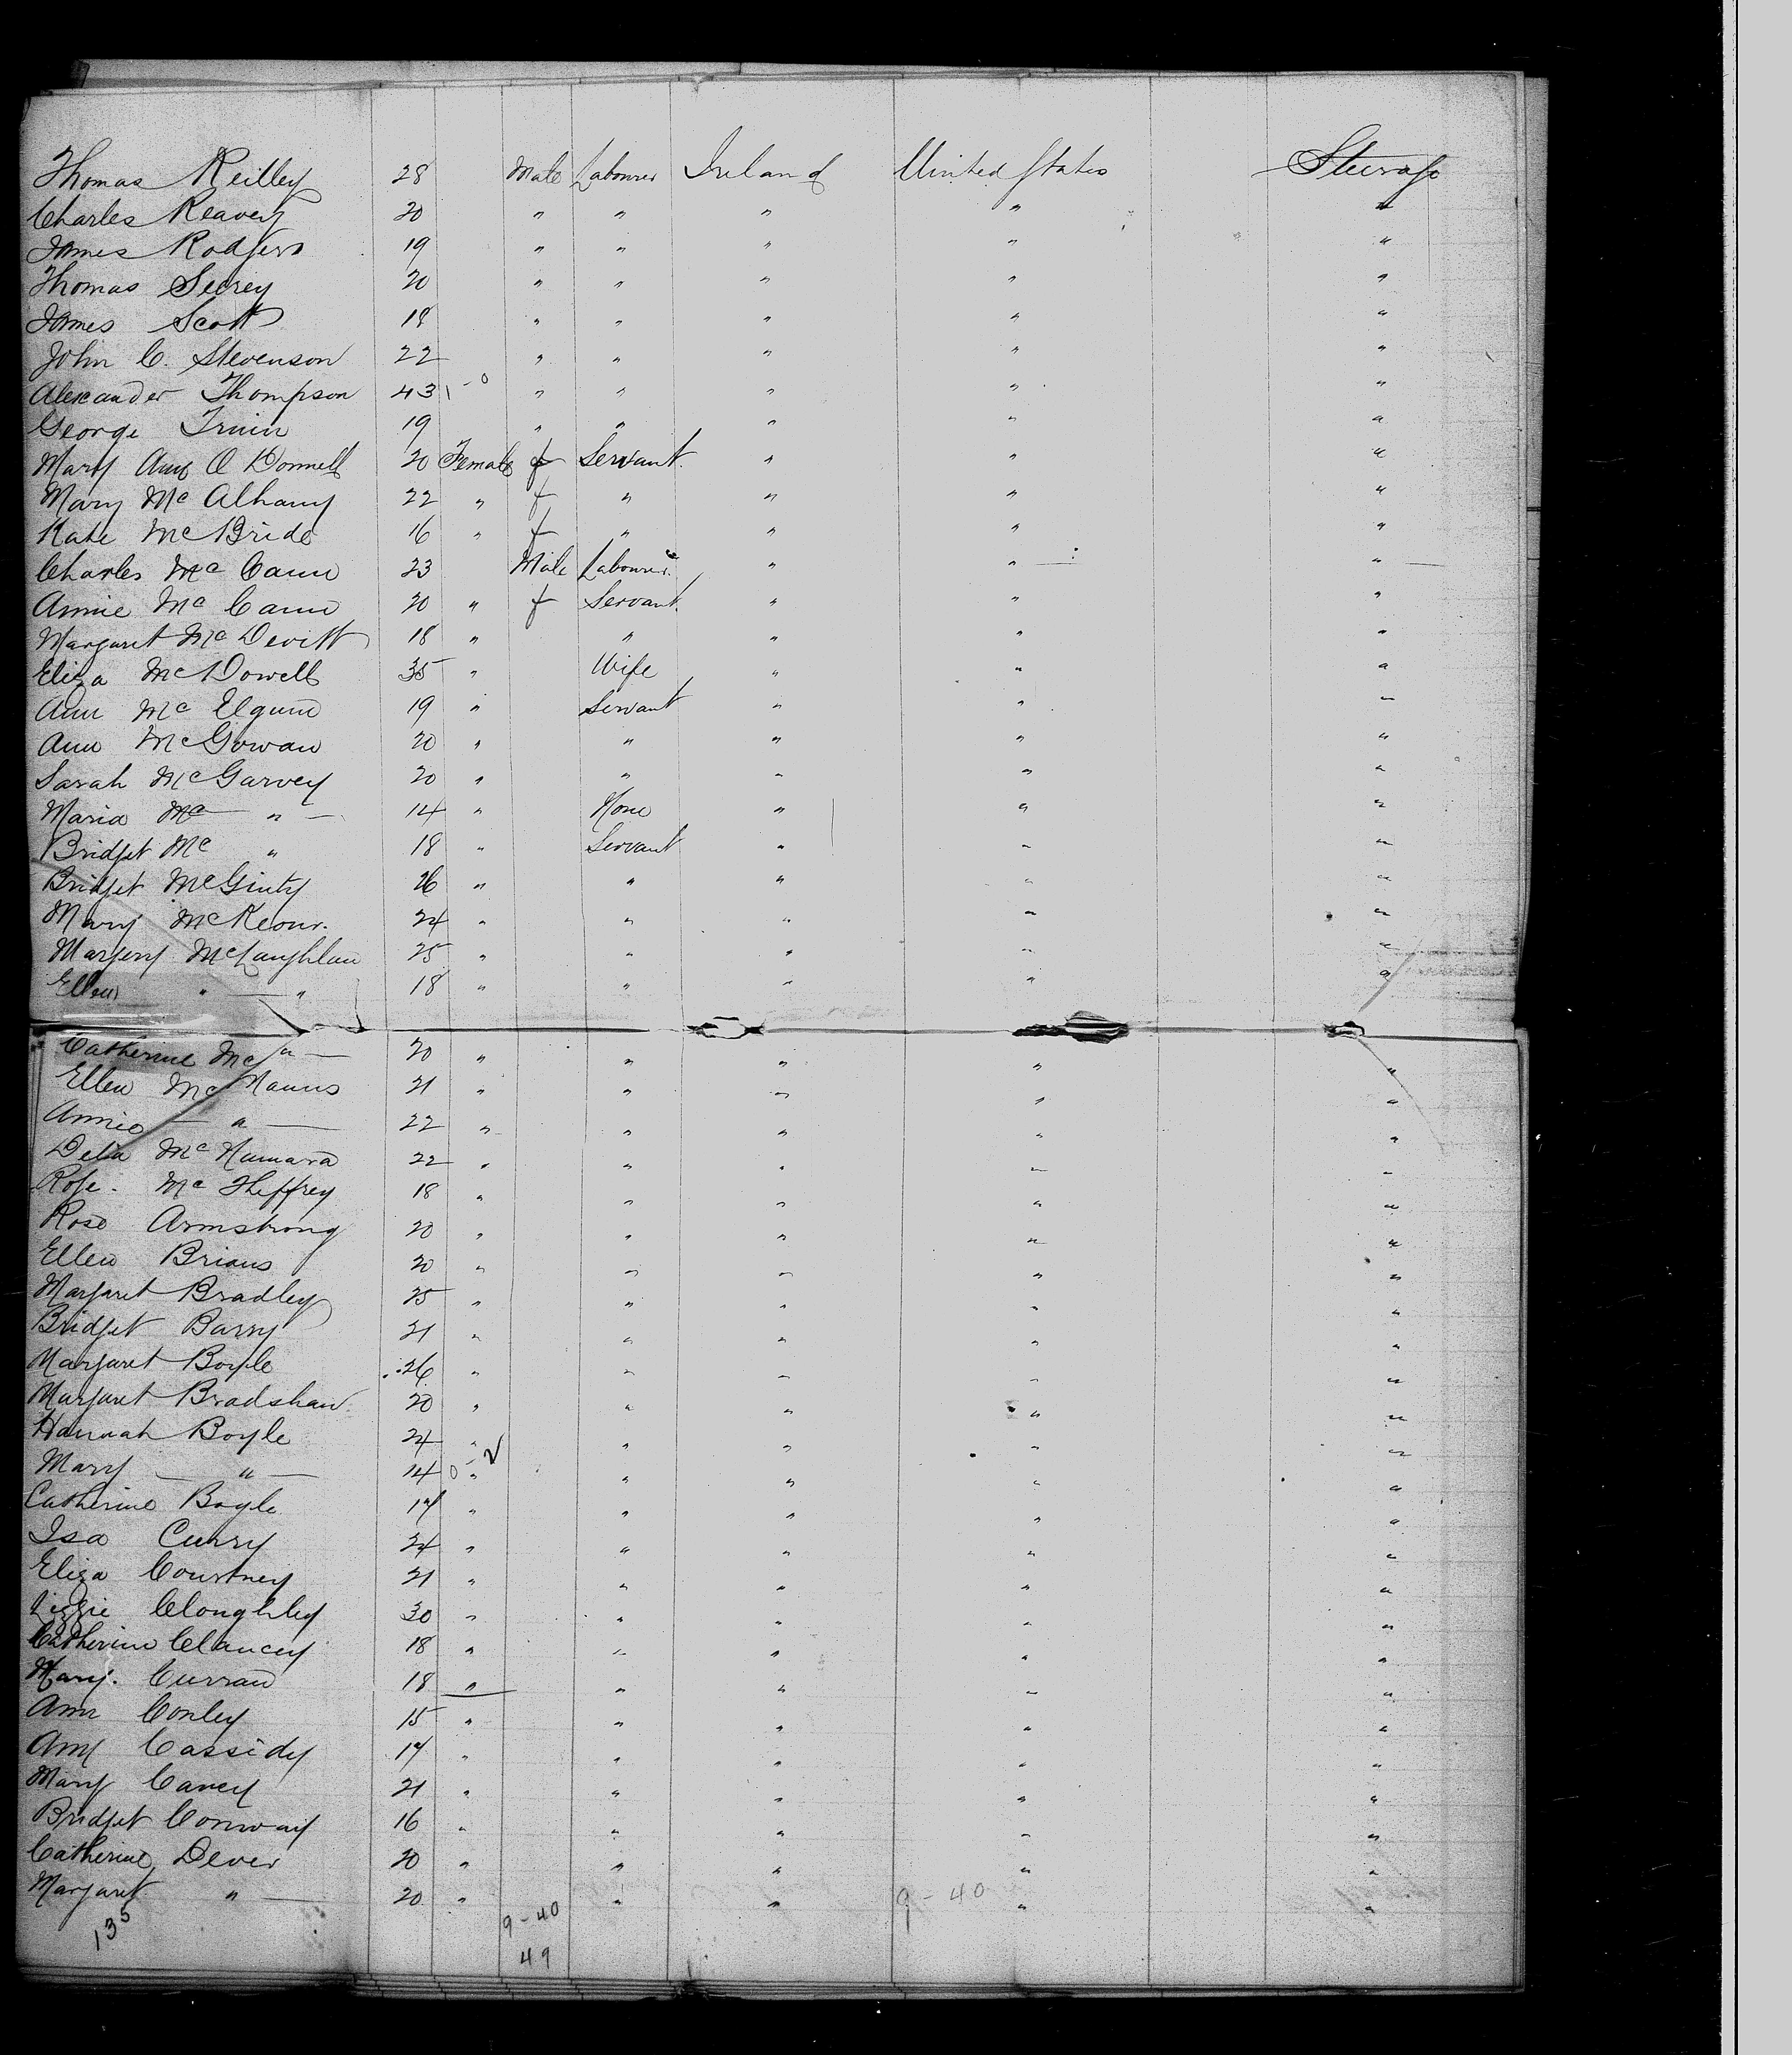 Thomas Reilley 28 Male Labourer Ireland United States Steerage
Charles Reavey 20 " " " " "
James Rodgers 19 " " " " "
Thomas Secrey 20 " " " " "
James Scott 18 " " " " "
John C. Stevenson 22 " " " " "
Alexander Thompson 43 " " " " "
George Irwin 19 " " " " "
Mary Ann O Donnell 20 Female f Servant " " "
Mary Mc Alhany 22 " f " " " "
Kate McBride 16 " f " " " "
Charles Mc Cann 23 Male Labourer " " "
Annie Mc Cann 20 " f Servant " " "
Margaret McDevitt 18 " " " " "
Eliza McDowell 35 " Wife " " "
Ann Mc Elgunn 19 " Servant " " "
Ann McGowan 20 " " " " "
Sarah McGarvey 20 " " " " "
Maria Mc " 14 " None " " "
Bridget Mc " 18 " Servant " " "
Bridget McGinty 26 " " " " "
Mary McKeown 24 " " " " "
Margery McLaughlan 25 " " " " "
Ellen " " 18 " " " " "
Catherine Mc " 20 " " " " "
Ellen McManus 21 " " " " "
Annie " 22 " " " " "
Delia McNamara 22 " " " " "
Rose Mc Sheffrey 18 " " " " "
Rose Armstrong 20 " " " " "
Ellen Brians 20 " " " " "
Margaret Bradley 25 " " " " "
Bridget Barry 21 " " " " "
Margaret Boyle 26 " " " " "
Margaret Bradshaw 20 " " " " "
Hannah Boyle 24 " " " " "
Mary " 14 " " " " "
Catherine Boyle 17 " " " " "
Isa Curry 24 " " " " "
Eliza Courtney 21 " " " " "
Lizzie Cloughley 30 " " " " "
Catherine Clancey 18 " " " " "
Mary Curran 18 " " " " "
Ann Conley 15 " " " " "
Amy Cassidy 17 " " " " "
Mary Carey 21 " " " " "
Bridget Conway 16 " " " " "
Catherine Dever 20 " " " " "
Margaret " 20 " " " " "
135 9-40 9-40
49